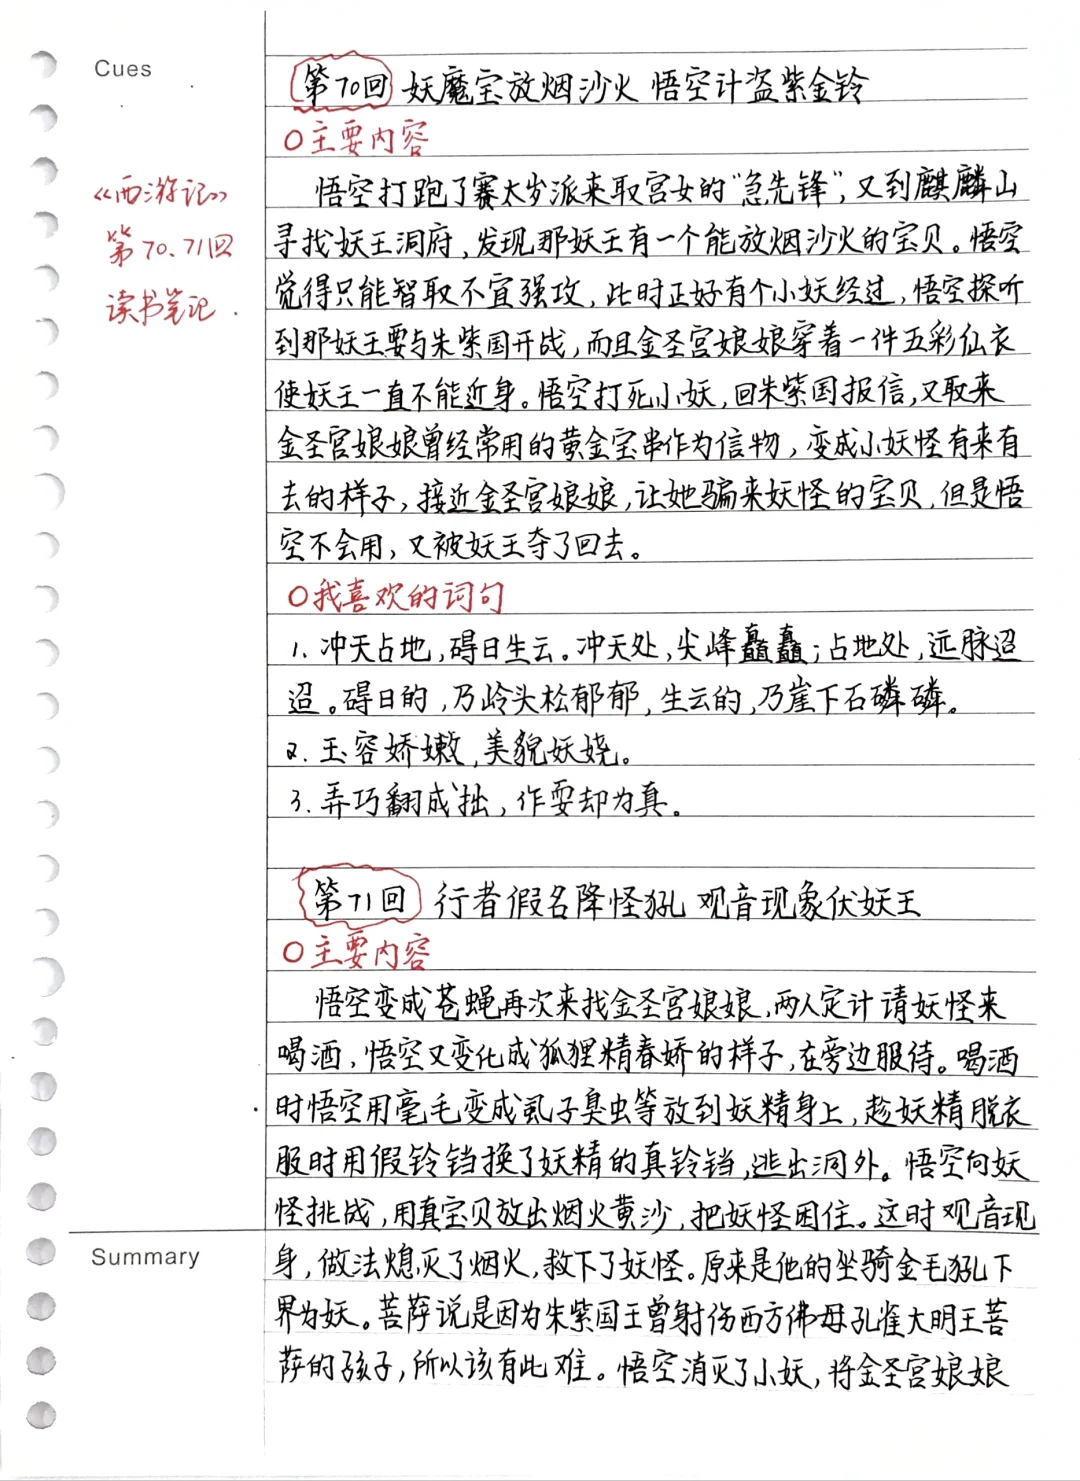 Cues
《西游记》
第70、71回
读书笔记.
第70回 妖魔宝放烟沙火 悟空计盗紫金铃
○主要内容
悟空打跑了赛太岁派来取宫女的“急先锋”,又到麒麟山
寻找妖王洞府,发现那妖王有一个能放烟沙火的宝贝。悟空
觉得只能智取不宜强攻,此时正好有个小妖经过,悟空探听
到那妖王要与朱紫国开战,而且金圣宫娘娘穿着一件五彩仙衣
使妖王一直不能近身。悟空打死小妖,回朱紫国报信,又取来
金圣宫娘娘曾经常用的黄金宝串作为信物,变成小妖怪有来有
去的样子,接近金圣宫娘娘,让她骗来妖怪的宝贝,但是悟
空不会用,又被妖王夺了回去。
○我喜欢的词句
1. 冲天占地,碍日生云。冲天处,尖峰矗矗;占地处,远脉迢
迢。碍日的,乃岭头松郁郁,生云的,乃崖下石磷磷。
2. 玉容娇嫩,美貌妖娆。
3. 弄巧翻成拙,作耍却为真。
第71回 行者假名降怪犼 观音现象伏妖王
○主要内容
悟空变成苍蝇再次来找金圣宫娘娘,两人定计请妖怪来
喝酒,悟空又变化成狐狸精春娇的样子,在旁边服侍。喝酒
时悟空用毫毛变成虱子臭虫等放到妖精身上,趁妖精脱衣
服时用假铃铛换了妖精的真铃铛,逃出洞外。悟空向妖
怪挑战,用真宝贝放出烟火黄沙,把妖怪困住。这时观音现
Summary
身,做法熄灭了烟火,救下了妖怪。原来是他的坐骑金毛犼下
界为妖。菩萨说是因为朱紫国王曾射伤西方佛母孔雀大明王菩
萨的孩子,所以该有此难。悟空消灭了小妖,将金圣宫娘娘